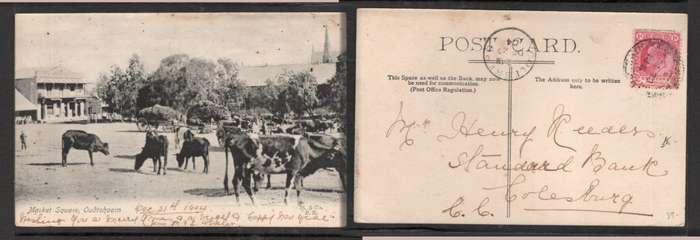 Market Square, Oudtshoorn
Dec 21st 1904
Wishing you a merry Xmas & a Happy New Year
POST CARD.
This Space as well as the Back, may now
be used for communication.
(Post Office Regulation.)
The Address only to be written
here.
Mr Henry Reeders
Standard Bank
Colesburg
C.C.